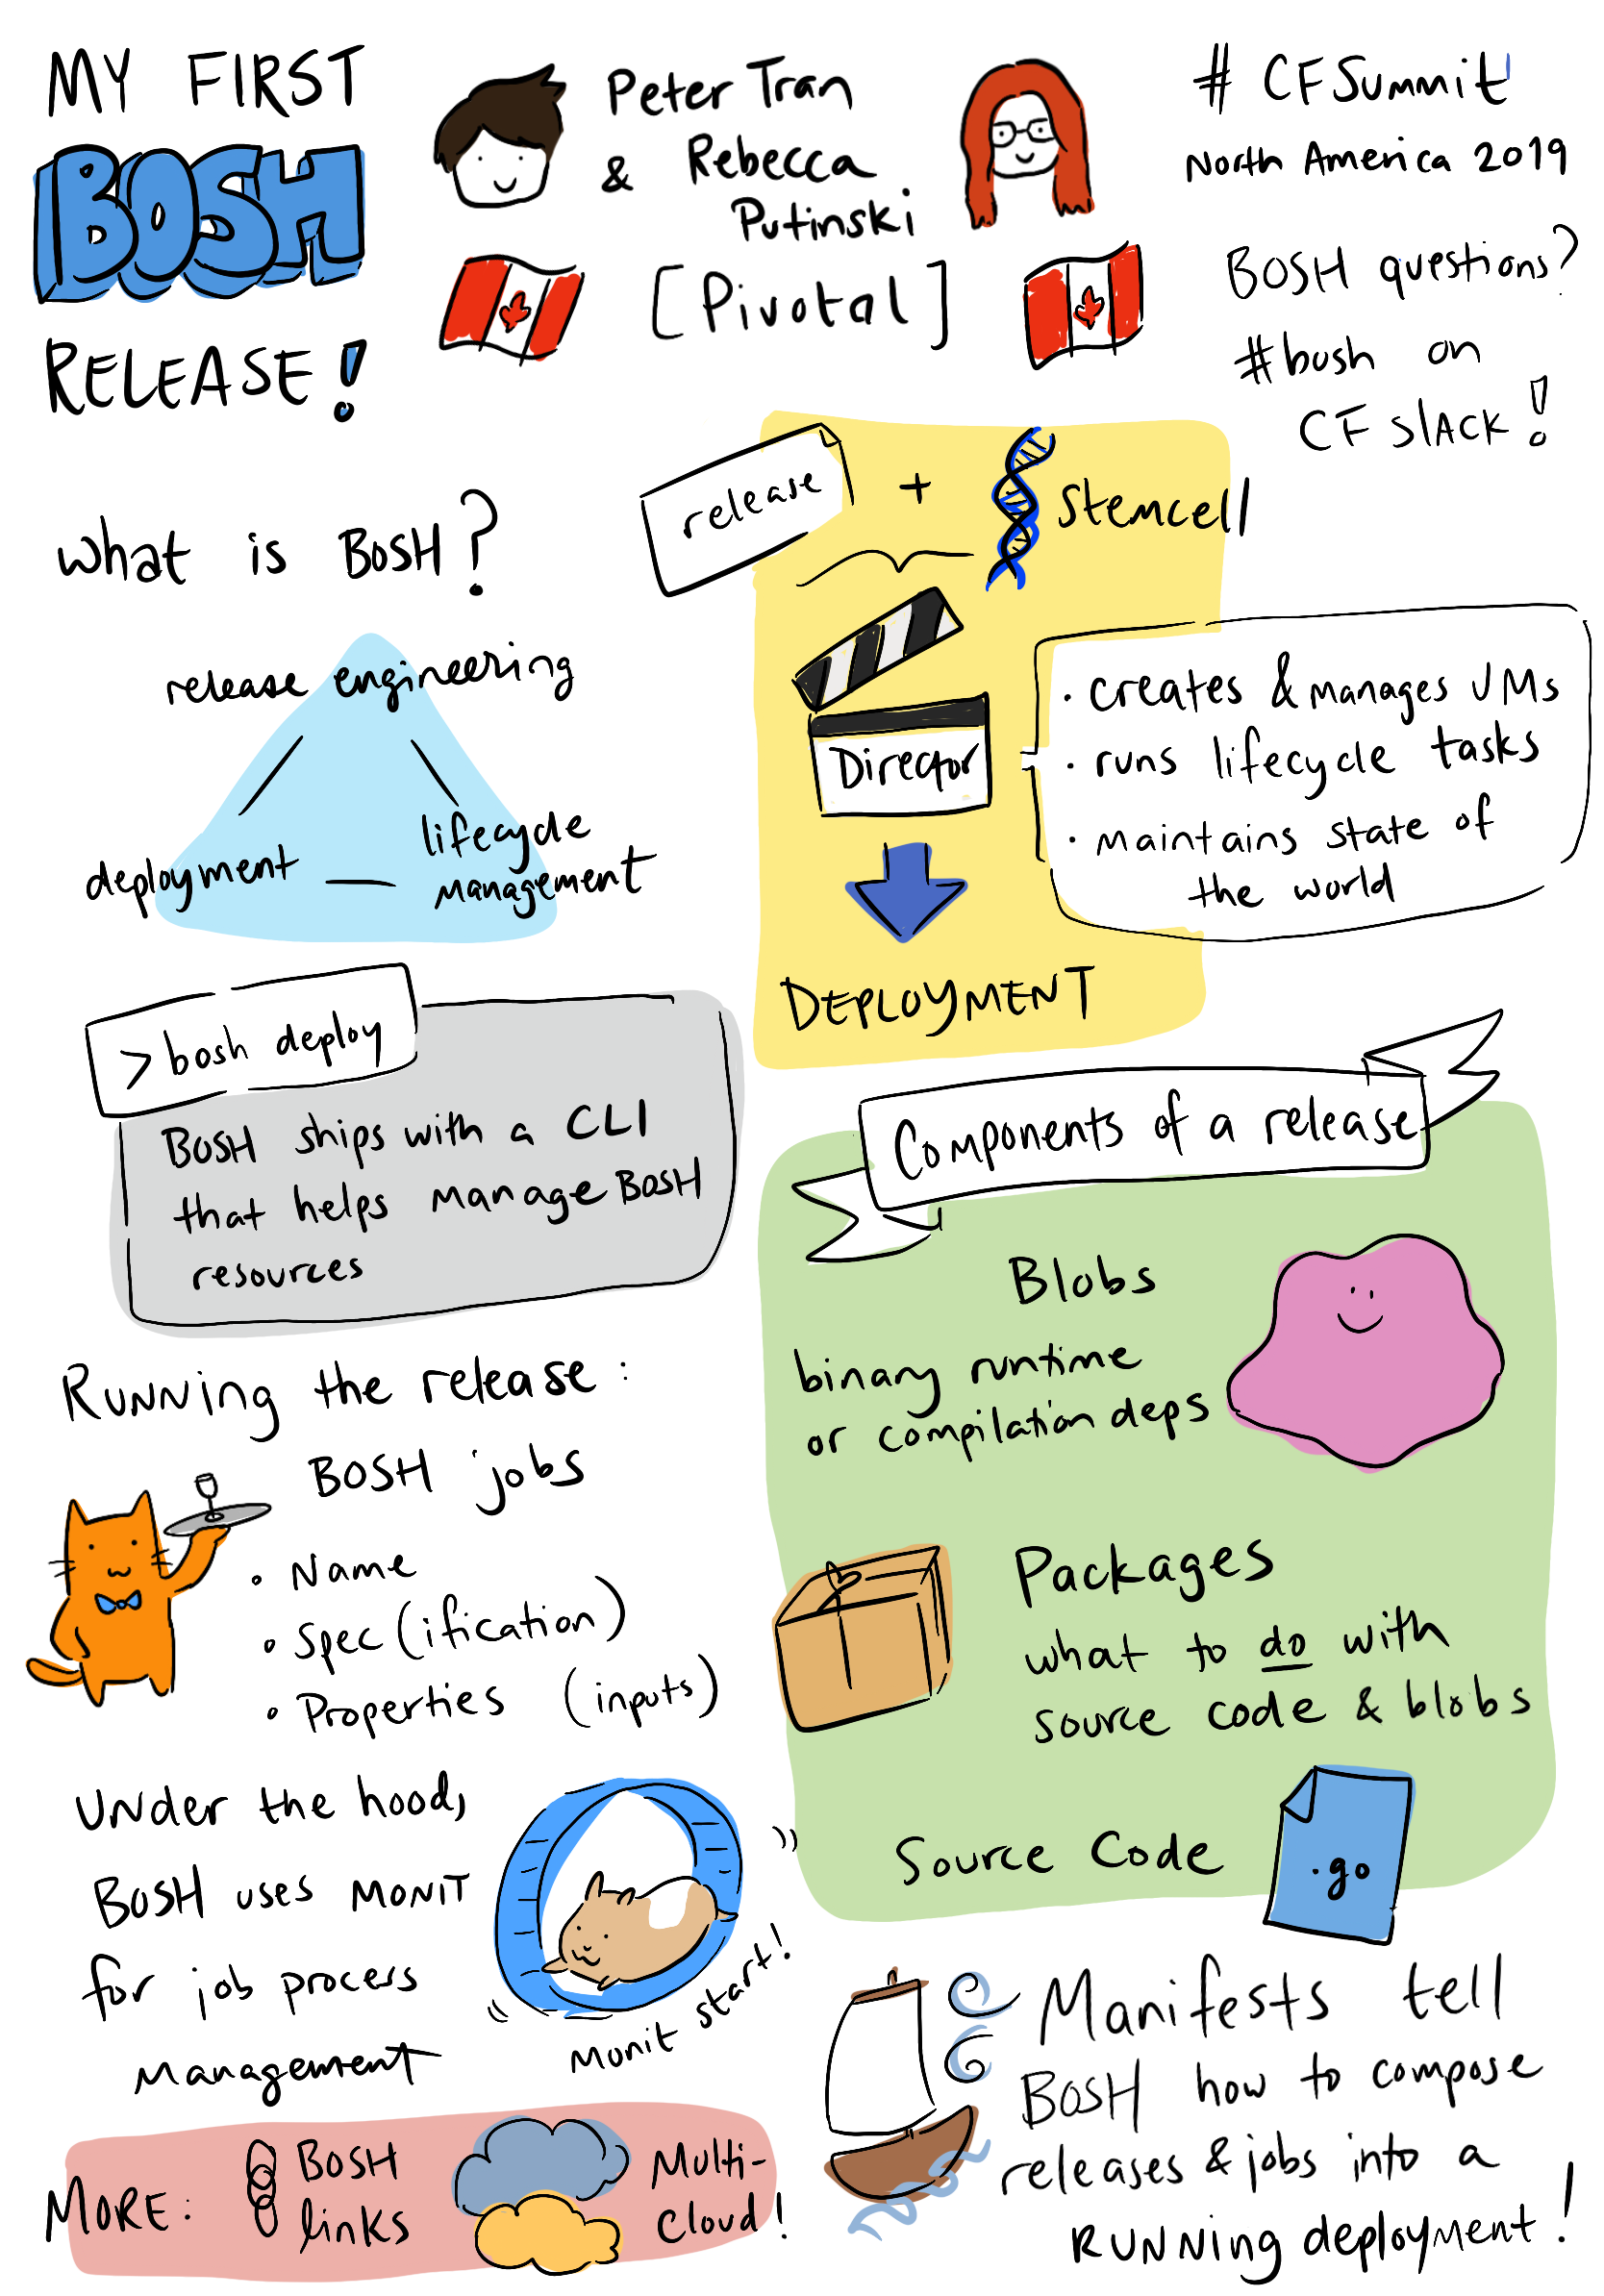 MY FIRST
BOSH
RELEASE!
Peter Tran
& Rebecca
Putinski
[Pivotal]
# CFSummit
North America 2019
BOSH questions?
#bosh on
CF Slack!
what is BOSH?
release engineering
deployment
lifecycle
management
release + Stemcell
Director
· creates & manages VMs
· runs lifecycle tasks
· maintains state of
the world
DEPLOYMENT
> bosh deploy
BOSH ships with a CLI
that helps manage BOSH
resources
Components of a release
Blobs
binary runtime
or compilation deps
Packages
what to do with
source code & blobs
Source Code
.go
Running the release:
BOSH jobs
· Name
· Spec(ification)
· Properties (inputs)
Under the hood,
BOSH uses MONIT
for job process
management
monit start!
Manifests tell
BOSH how to compose
releases & jobs into a
RUNNing deployment!
MORE:
BOSH
links
Multi-
Cloud!